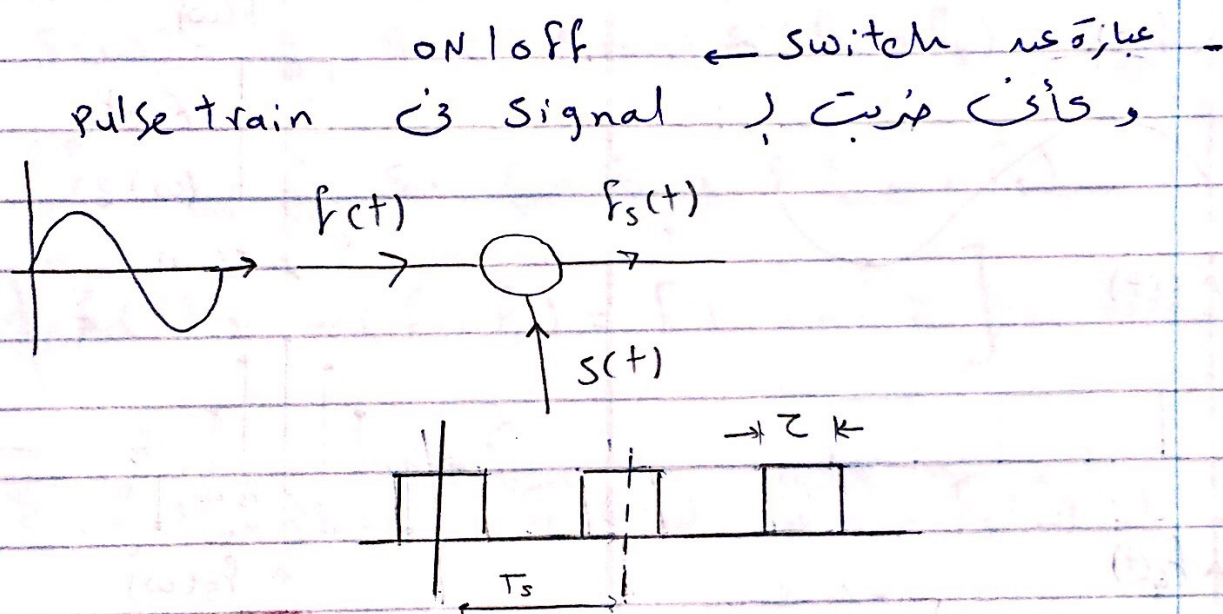 - عبارة عن switch ← ON/off
و كأنى ضربت لـ signal فى pulse train
f(t)
fs(t)
s(t)
τ
Ts